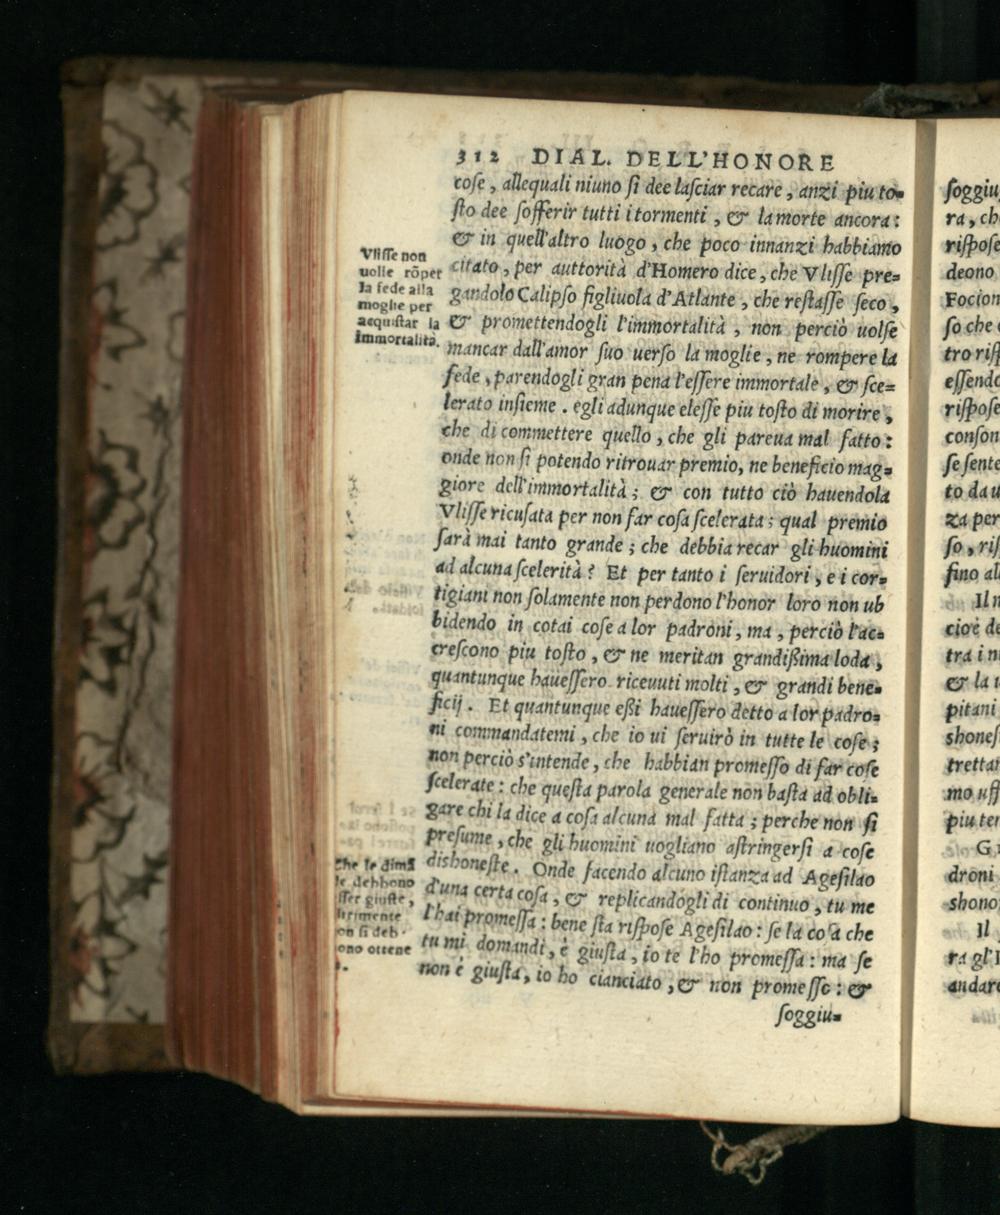 312 DIAL. DELL'HONORE
cose, allequali niuno si dee lasciar recare, anzi piu to=
sto dee sofferir tutti i tormenti, & la morte ancora:
& in quell'altro luogo, che poco innanzi habbiamo
citato, per auttorità d'Homero dice, che Vlisse pre=
gandolo Calipso figliuola d'Atlante, che restasse seco,
& promettendogli l'immortalità, non perciò uolse
mancar dall'amor suo uerso la moglie, ne rompere la
fede, parendogli gran pena l'essere immortale, & sce=
lerato insieme. egli adunque elesse piu tosto di morire,
che di commettere quello, che gli pareua mal fatto:
onde non si potendo ritrouar premio, ne beneficio mag=
giore dell'immortalità; & con tutto ciò hauendola
Vlisse ricusata per non far cosa scelerata; qual premio
sarà mai tanto grande; che debbia recar gli huomini
ad alcuna scelerità? Et per tanto i seruidori, e i cor=
tigiani non solamente non perdono l'honor loro non ub
bidendo in cotai cose a lor padroni, ma, perciò l'ac=
crescono piu tosto, & ne meritan grandißima loda,
quantunque hauessero riceuuti molti, & grandi bene=
ficij. Et quantunque eßi hauessero detto a lor padro=
ni commandatemi, che io ui seruirò in tutte le cose;
non perciò s'intende, che habbian promesso di far cose
scelerate: che questa parola generale non basta ad obli=
gare chi la dice a cosa alcuna mal fatta; perche non si
presume, che gli huomini uogliano astringersi a cose
dishoneste. Onde facendo alcuno istanza ad Agesilao
d'una certa cosa, & replicandogli di continuo, tu me
l'hai promessa: bene sta rispose Agesilao: se la cosa che
tu mi domandi, è giusta, io te l'ho promessa: ma se
non è giusta, io ho cianciato, & non promesso: &
soggiu=
Vlisse non
uolle rõper
la fede alla
moglie per
acquistar la
immortalità.
che le dimã
le debbono
sser giuste,
ltrimente
on si deb
ono ottene
soggiu
ra, che
rispose
deono
Focion
so che
tro risp
essendo
rispose
conson
se sente
to da u
za per
so, ris
fino al
Il n
cioè de
tra i n
& la u
pitani
shones
trettan
mo uff
piu ten
G
droni
shono
Il
ra gl'I
andare